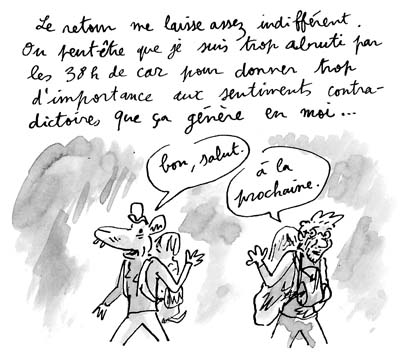 Le retour me laisse assez indifférent.
Ou peut-être que je suis trop abruti par
les 38h de car pour donner trop
d'importance aux sentiments contra-
dictoires que ça génère en moi...
bon, salut.
à la
prochaine.